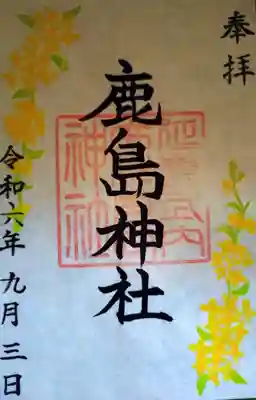 奉拝
鹿島神社
令和六年九月三日